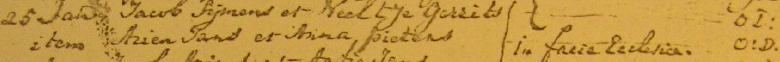 25 Jan Jacob Sijmens et Neeltje Gerrits { — O I:
item Arien Jans et Anna pieters in facie Ecclesiae. O: D.